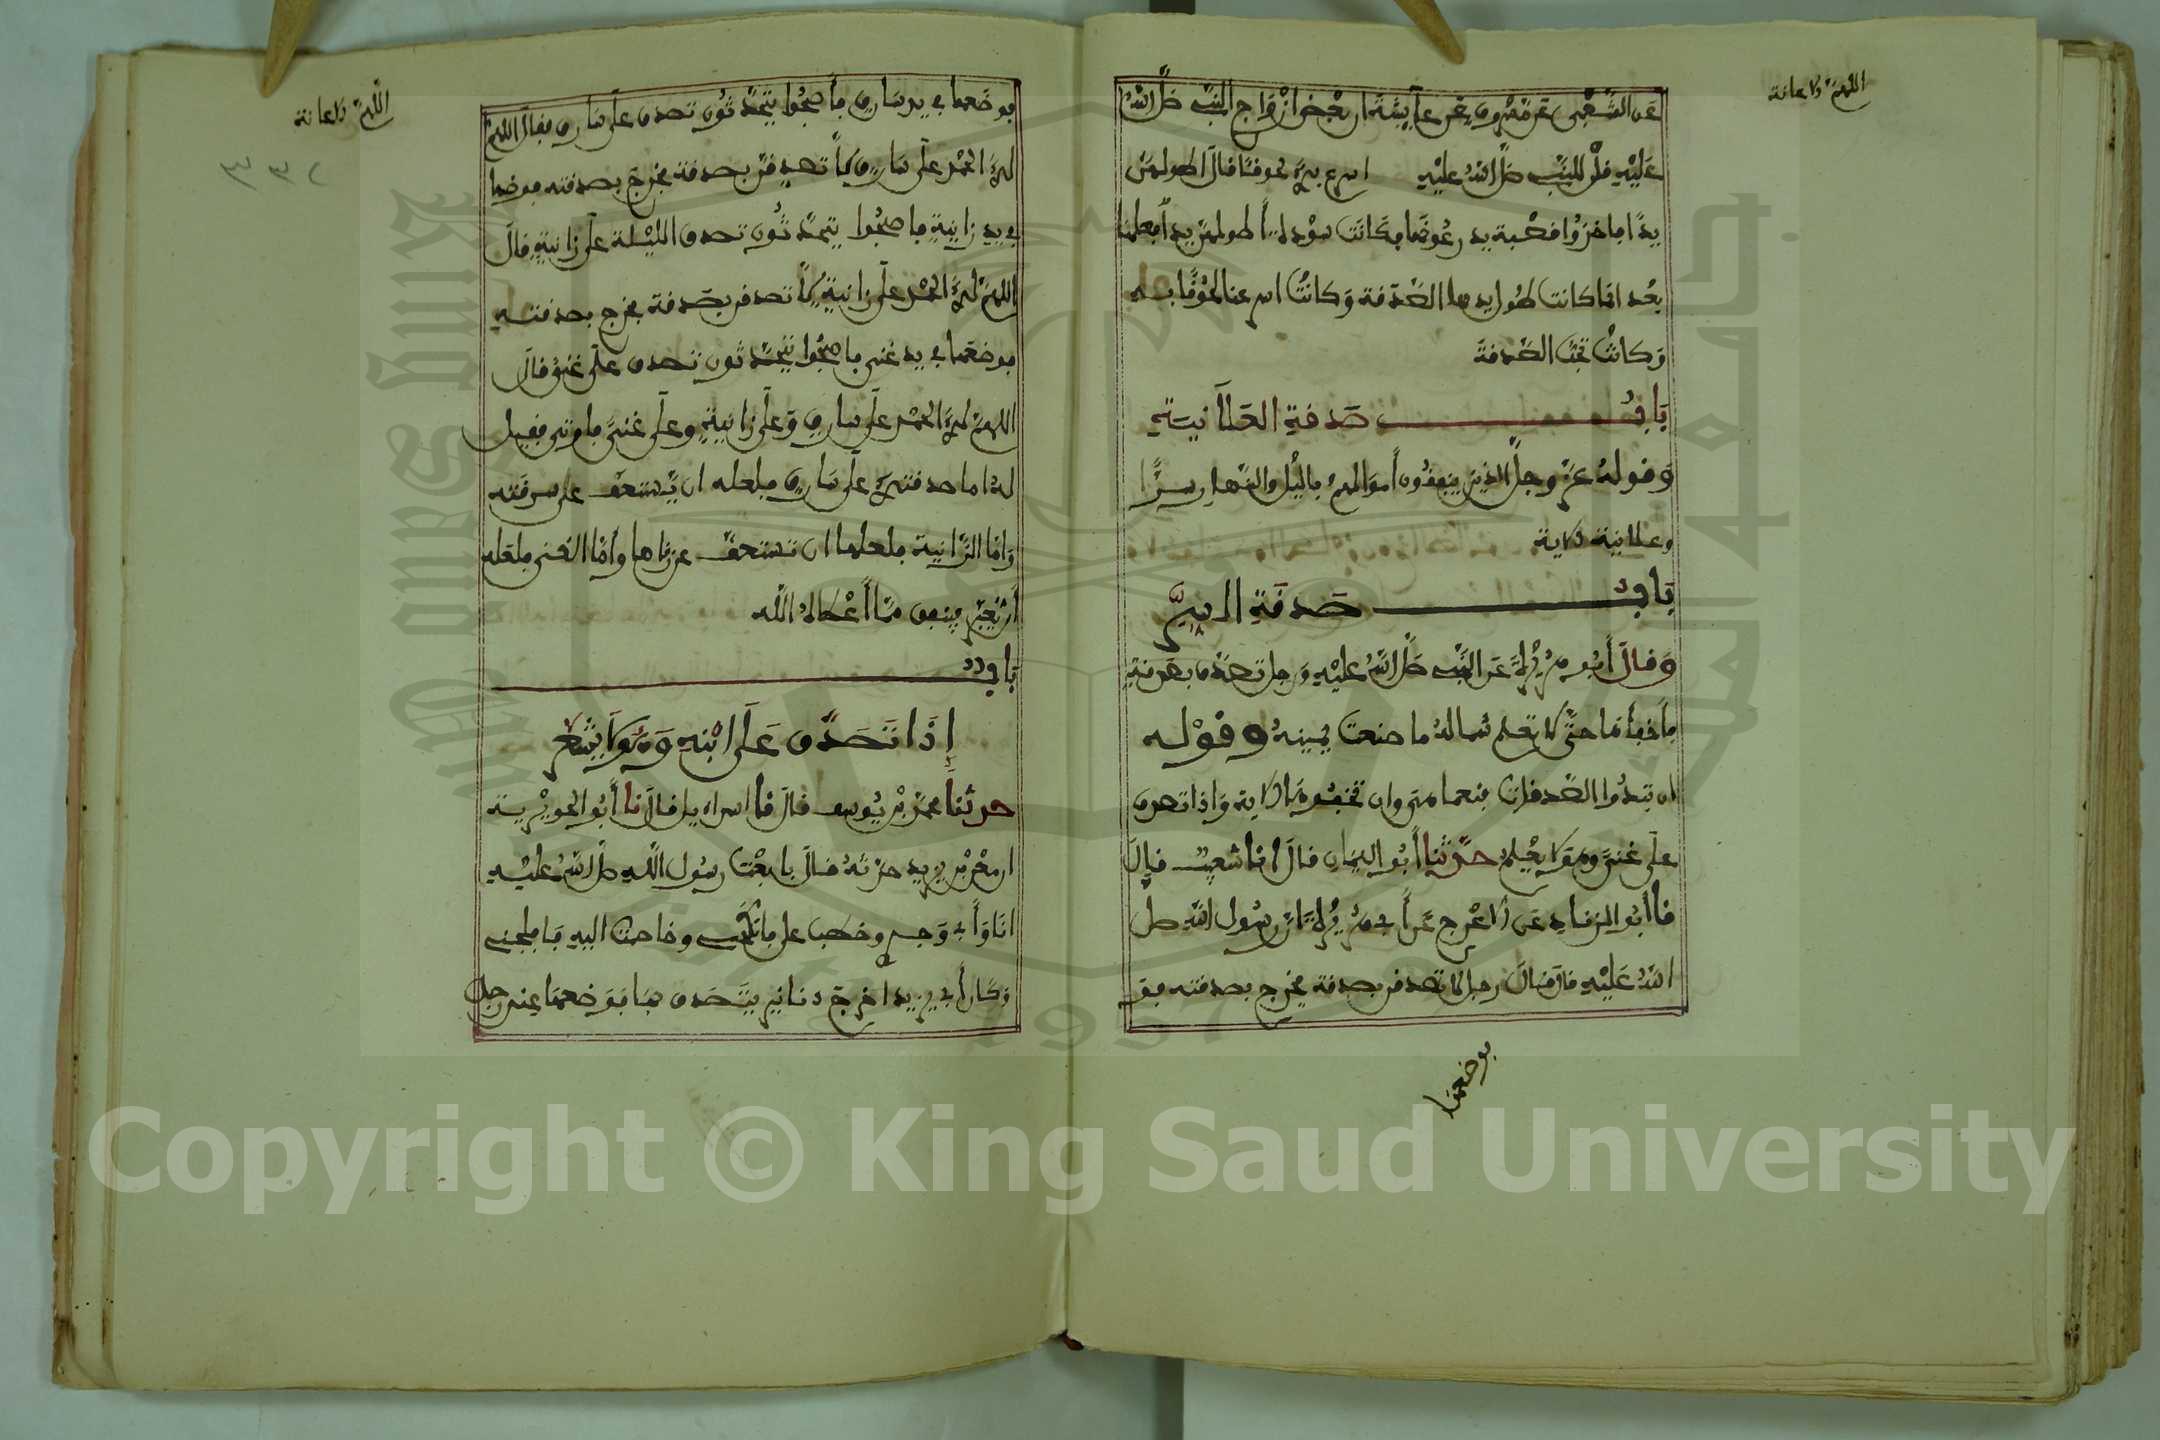 اللهم الاعانة
عن الشعبي عن مسروق عن عايشة ان بعض ازواج النبي صلى الله
عليه قلن للنبي صلى الله عليه اسرع بك لحوقا قال اطولكن
يدا فاخذوا قصبة يذرعونها فكانت سودة اطولهن يدا فعلمنا
بعد انما كانت طول يدها الصدقة وكانت اسرعنا لحوقا به
وكانت تحب الصدقة
باب صدقة العلانية
وقوله عز وجل الذين ينفقون أموالهم باليل والنهار سرا
وعلانية الاية
باب صدقة السر
وقال أبو هريرة عن النبي صلى الله عليه ورجل تصدق بصدقة
فأخفاها حتى لا تعلم شماله ما صنعت يمينه وقوله
ان تبدوا الصدقات فنعما هي وان تخفوها الاية واذا تصدق
على غني وهو لا يعلم حدثنا أبو اليمان قال انا شعيب قال
نا أبو الزناد عن الاعرج عن أبي هريرة ان رسول الله صلى
الله عليه قال قال رجل لاتصدقن بصدقة فخرج بصدقته فو
فوضعها
اللهم الاعانة
٣٣٢
فوضعها في يد سارق فأصبحوا يتحدثون تصدق على سارق فقال اللهم
لك الحمد على سارق لأتصدقن بصدقة فخرج بصدقته فوضعها
في يد زانية فاصبحوا يتحدثون تصدق الليلة على زانية فقال
اللهم لك الحمد على زانية لأتصدقن بصدقة فخرج بصدقته
فوضعها في يد غني فاصبحوا يتحدثون تصدق على غني فقال
اللهم لك الحمد على سارق وعلى زانية وعلى غني فاوتي فقيل
له اما صدقتك على سارق فلعله ان يستعف عن سرقته
واما الزانية فلعلها ان تستعف عن زناها وأما الغني فلعله
أن يعتبر فينفق مما أعطاه الله
باب
إذا تصدق على ابنه وهو لا يشعر
حدثنا محمد بن يوسف قال نا اسراءيل قال نا أبو الجويرية
ان معن بن يزيد حدثه قال بايعت رسول الله صلى الله عليه
انا وأبي وجدي وخطب علي فانكحني وخاصمت اليه
وكان أبي يزيد اخرج دنانير يتصدق بها فوضعها عند رجل
Copyright © King Saud University
King Saud University
جامعة الملك سعود
1957